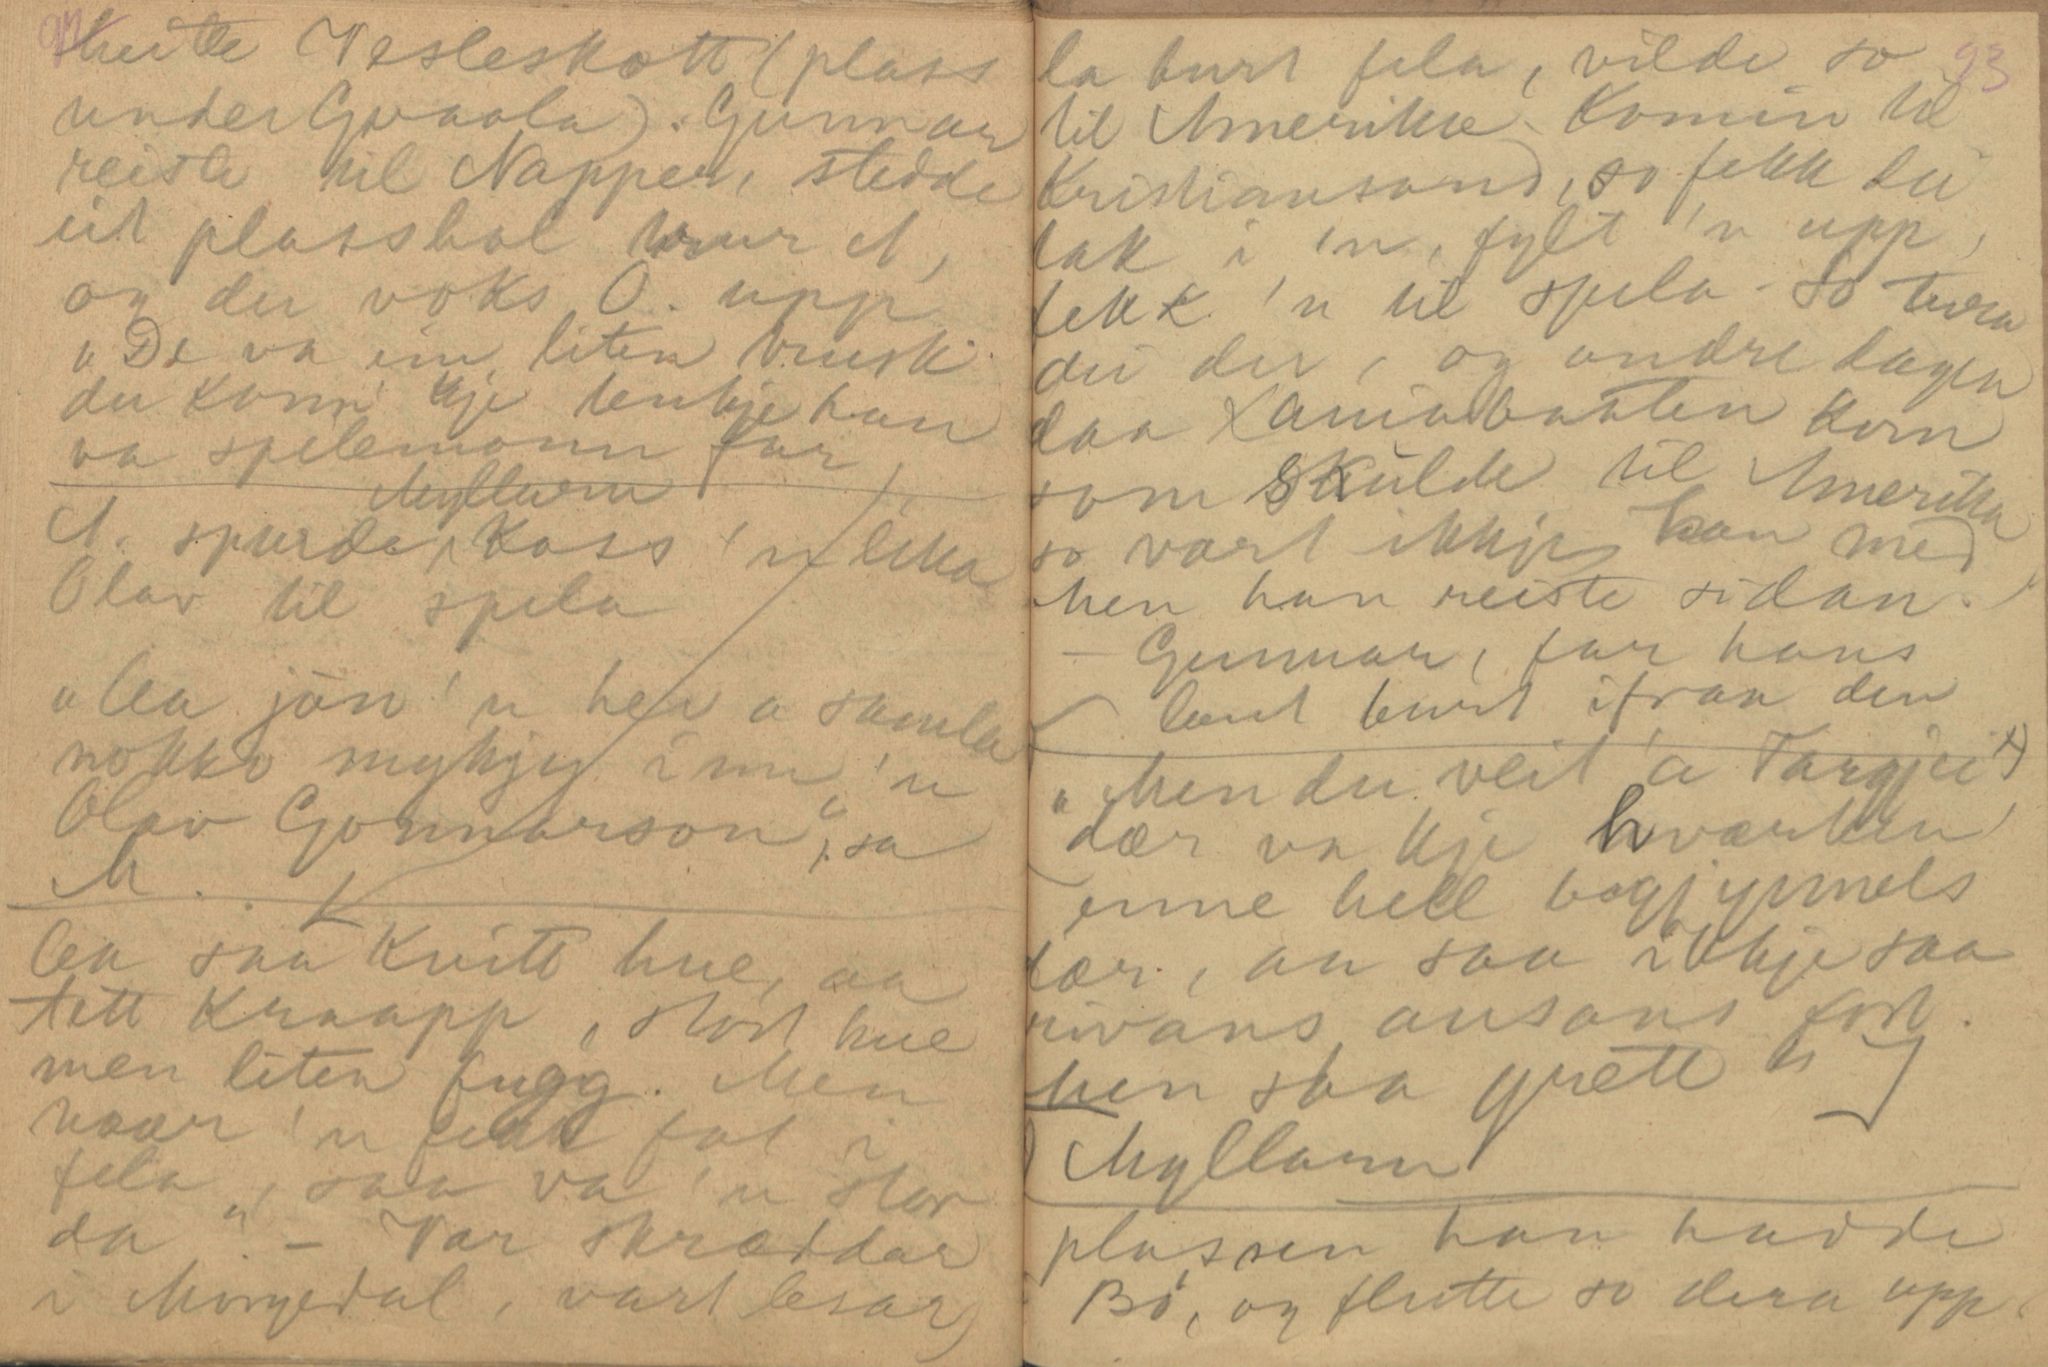 92
heitte Vesleskott (plass
under Gvaala). Gunnar
reiste til Napper, stedde
eit plasshol burt,
og der voks O. upp
„De va ein liten brusk
du konn' kje tenkje han
va spelemann for,
Myllarn
A. spurde, Koss 'n lika
Olav til spela
„Aa jøn 'n hev a samla
nokko mykjy inn 'n
Olav Gonnarson", sa
M.
Aa saa kvitt hue, aa
tett kraapp, stort hue
men liten fugg. Men
naar 'n fekk fat i
fela, saa va 'n stor
da". – Var skræddar
i Morgedal, vart lesar,
93
la burt fela, vilde so
til Amerika. Komin til
Kristiansand, so fekk dei
tak i 'n, fylt 'n upp,
fekk 'n til spela. So tura
dei der, og andre dagen
daa Xaniabaaten kom
som skulde til Amerika
so vart ikkje han med
Men han reiste sidan.
– Gunnar, far hans
langt burt ifraa den
„Men du veit 'a Targjei
dær va kje hvarken
enne hell bogjynnels
dær, an saa ikkje saa
vivans ausans fort.
Men saa grett"
Myllarn
plassen han hadde
Bö, og flutte so dera upp.